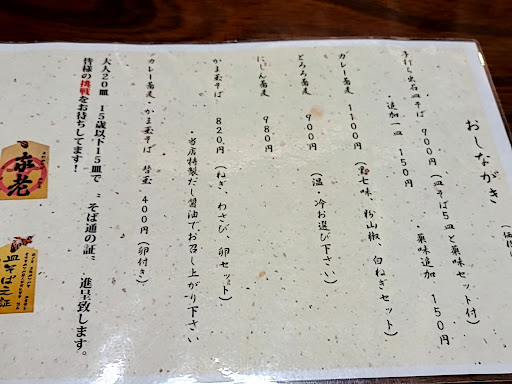 おしながき
手打ち出石皿そば 900円(皿そば5皿と薬味セット付)
・追加一皿 150円 ・薬味追加 150円
カレー蕎麦 1100円(黒七味、粉山椒、白ねぎセット)
とろろ蕎麦 900円 (温・冷お選び下さい)
にしん蕎麦 980円
かま玉そば 820円(ねぎ、わさび、卵セット)
・当店特製だし醤油でお召し上がり下さい
カレー蕎麦・かま玉そば 替玉 400円(卵付き)
大人20皿 15歳以下15皿で〝そば通の証〟進呈致します。
皆様の挑戦をお待ちしてます!
皿そば之証